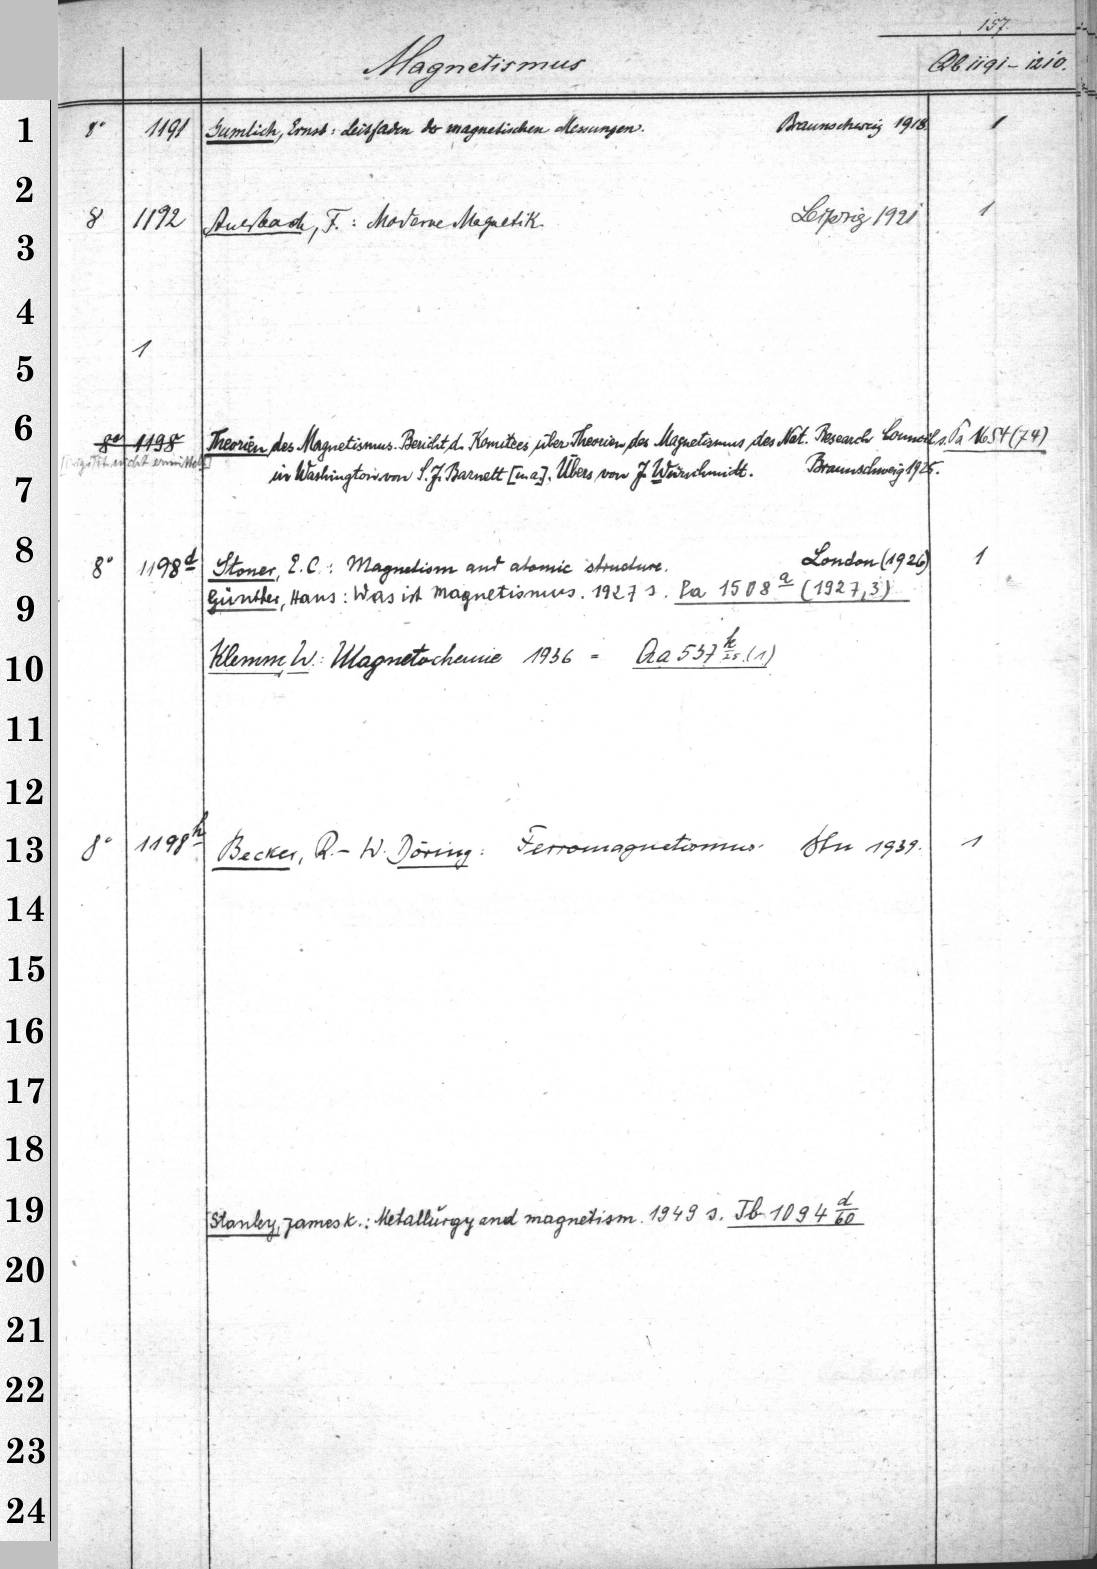 157.
Magnetismus Qb 1191 – 1210.
1 8° 1191 Gumlich, Ernst: Leitfaden der magnetischen Messungen. Braunschweig 1918. 1
2
8 1192 Auerbach, F.: Moderne Magnetik. Leipzig 1921 1
3
4
1
5
6 8° 1198 Theorien des Magnetismus. Bericht d. Komitees über Theorien des Magnetismus des Nat. Research Council s. Pa 1654 (74)
nicht ermittelt in Washington von S. J. Barnett [u.a.]. Übers von J. Würschmidt. Braunschweig 1925.
7
8 8° 1198d Stoner, E. C.: Magnetism and atomic structure. London (1926) 1
9 Günther, Hans: Was ist Magnetismus. 1927 s. Pa 1508a (1927,3)
10 Klemm, W.: Magnetochemie 1936 = Qa 537 h/25 (1)
11
12
13 8° 1198h Becker, R. – W. Döring: Ferromagnetismus. Bln 1939. 1
14
15
16
17
18
19 Stanley, James K.: Metallurgy and magnetism. 1949 s. Tb 1094 d/60
20
21
22
23
24